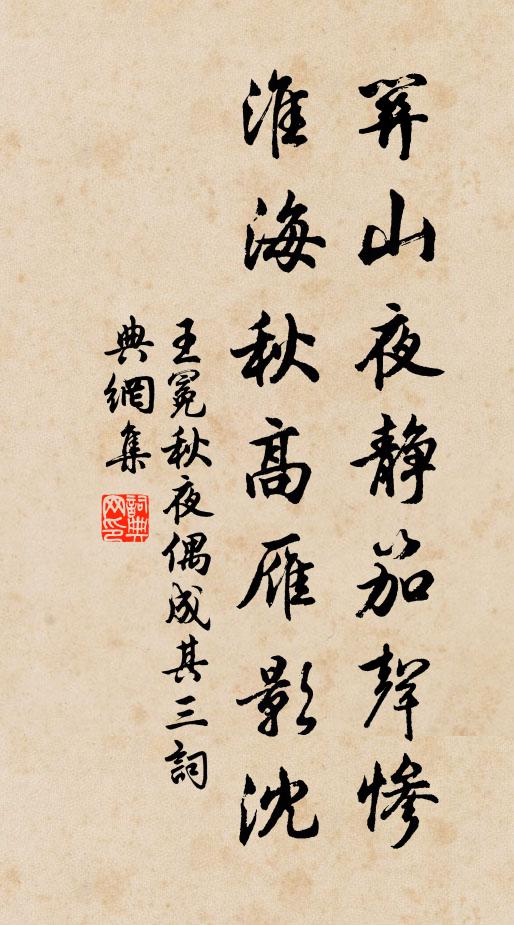 關山夜靜笳聲慘
淮海秋高雁影沈
王冕秋夜偶成其三詞
典網集
詞典網印